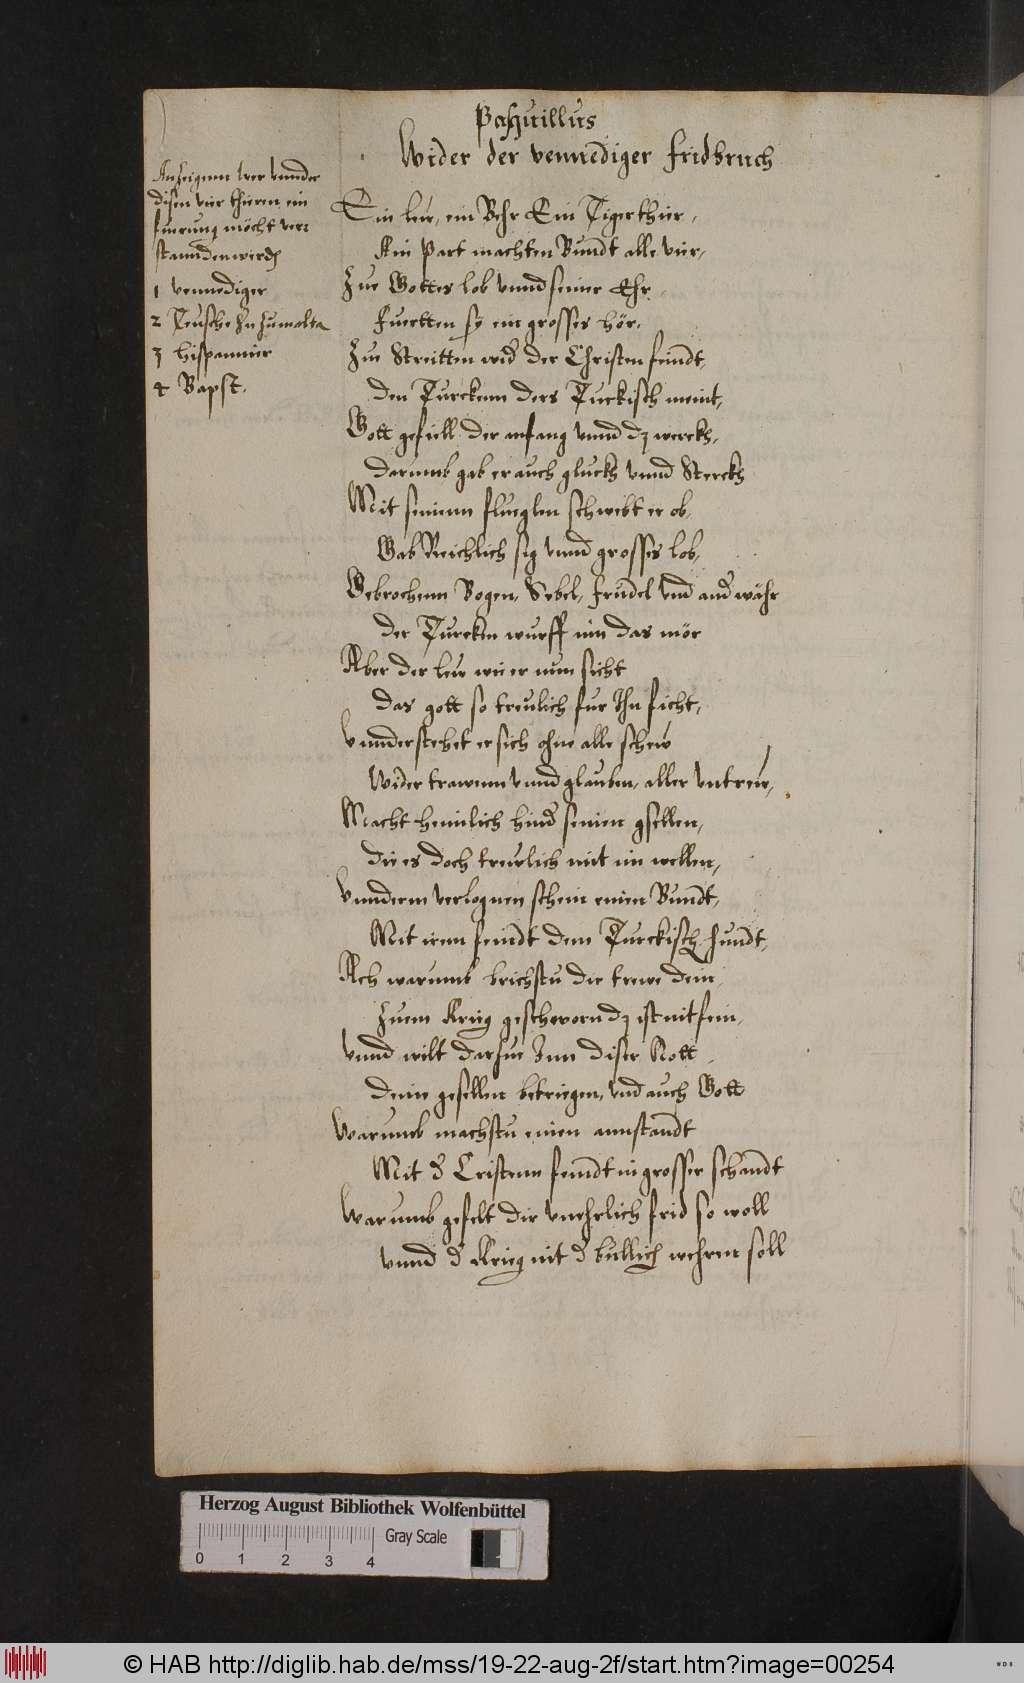 Pasquillus
Wider der vennediger fridbruch
Anzeigung wer vnnder
disen vier thieren ein
fuerung möcht ver:
stanndden werdn
1 vennediger
2 Teusche In Zu malta
3 hispannier
4 Bapst.
Ein lew, ein Behr Ein Tigerthier,
Ain Part machten Bundt alle vier,
Zue Gottes lob vnnd seiner Ehr,
Fuertten sy ein grosses hör,
Zue Streitten wid der Christen feindt,
den Turckenn ders Tuckisch meint,
Gott gefiell der anfang vnnd dz werckh,
darumb gab er auch gluckh vnnd Sterckh
Mit seinenn flueglen schwebt er ob,
Gab Reichlich sig vnnd grosses lob,
Gebrochenn Bogen, Sebel, frudel vnd and währ
der Turcken wurff inn das mör
Aber der lew wie er nun sicht
das gott so treulich fur Ihn ficht,
vnnderstehet er sich ohne alle schew
Wider trawenn vnnd glauben, aller vntrew,
Macht heimlich hind seinen gsellen,
die es doch trewlich mit im wellen,
vnnderm verlognen schein einen Bundt,
Mit irem feindt dem Turckisch hundt,
Ach warumb brichstu die trewe dein,
Zuem Krieg geschworn dz ist nit fein,
vnnd wilt darzue Inn diser Nott,
deine gesellen bekriegen, vnd auch Gott
Warumb machstu einen annstandt
Mit d Cristenn feindt in grosser schandt
Warumb gefelt dir vnehrlich frid so woll
vnnd d Krieg nit d billich wehren soll
Herzog August Bibliothek Wolfenbüttel
Gray Scale
0 1 2 3 4
© HAB http://diglib.hab.de/mss/19-22-aug-2f/start.htm?image=00254